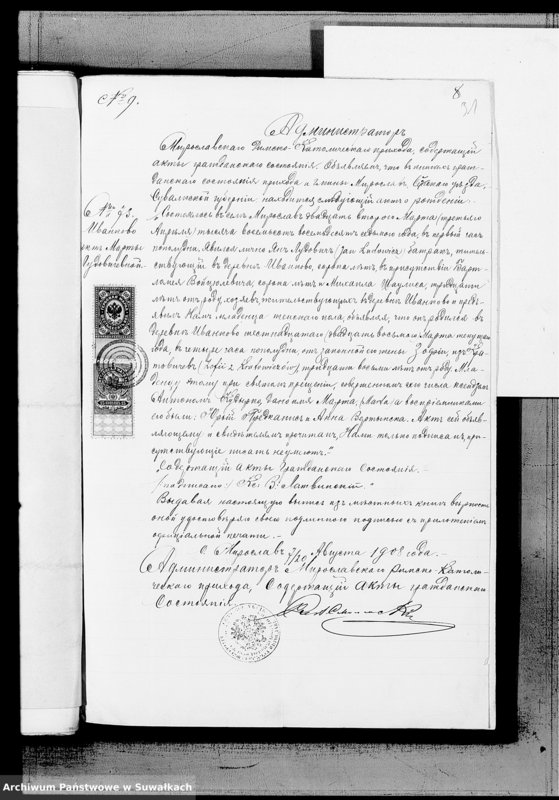 с № 9.
8
31
Администраторъ
Мирославскаго Римско-Католическаго прихода, содержащій
акты гражданскаго состоянія. Объявляю, что въ книгахъ граж-
данскаго состоянія прихода и гмины Мирославъ уѣзда,
Сувалкской губерніи находится слѣдующій актъ о рожденіи
№ 93.
Иваново
актъ Марты
Лудовичевной
Состоялось въ селѣ Мирославъ двадцать второго Марта (третьяго
Апрѣля) тысяча восемьсотъ восемьдесятъ года, въ первый часъ
пополудни. Явился лично Янъ Лудовичъ (Jan Ludowicz) батракъ, житель-
ствующій въ деревнѣ Иваново, сорока лѣтъ, въ присутствіи Барт-
ломея Войцюлевича, сорока лѣтъ и Михаила тридцати
лѣтъ отъ роду, хозяевъ жительствующихъ въ деревнѣ Иваново и предъ-
явилъ Намъ младенца женскаго пола, объявляя, что онъ родился въ
деревнѣ Иваново шестнадцатаго (двадцать восьмого) Марта текущаго
года, въ четыре часа пополудни, отъ законной его жены Зофіи, изъ
тридцати восьми лѣтъ отъ роду. Мла-
денцу этому при святомъ крещеніи, совершенномъ сего числа ксендзомъ
Антономъ дано имя Марта, (Marta) а воспріемниками
его были: Юрій и Анна Вортынска. Актъ сей объяв-
ляющему и свидѣтелямъ прочитанъ, Нами только подписанъ, при-
сутствующіе писать неумѣютъ."
Содержащій Акты Гражданскаго Состоянія. -
/подписано:/ Кс. В. Матвинскій."
Выдавая настоящую выпись изъ мѣстныхъ книгъ вѣрность
оной удостовѣряю своею подписью съ приложеніемъ
официальной печати. -
С. Мирославъ 7/20 Августа 1908 года. -
Администраторъ Мирославскаго Римско-Католи-
ческаго прихода, Содержащій Акты гражданскаго
Состоянія
Archiwum Państwowe w Suwałkach